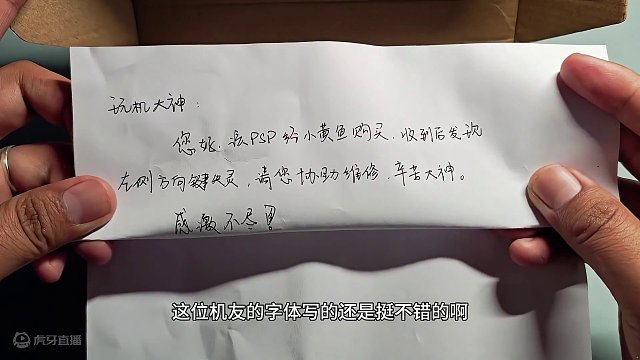 玩机大神:
您好,该PSP经小黄鱼购买,收到后发现
左侧方向键失灵,请您协助维修,辛苦大神。
感激不尽!
这位机友的字体写的还是挺不错的啊
虎牙直播